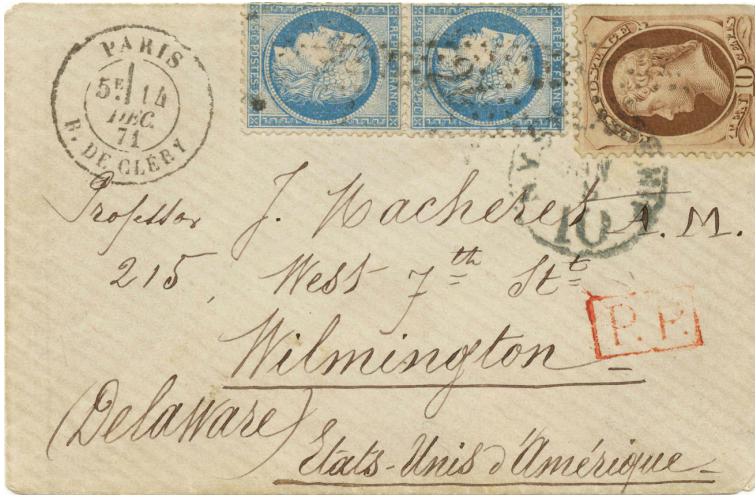 PARIS
5E 14
DEC.
71
R. DE CLÉRY
POSTES
FRANC
10
Professor J. Macheret A. M.
215, West 7th St
Wilmington
(Delaware)
États-Unis d'Amérique
P. P.